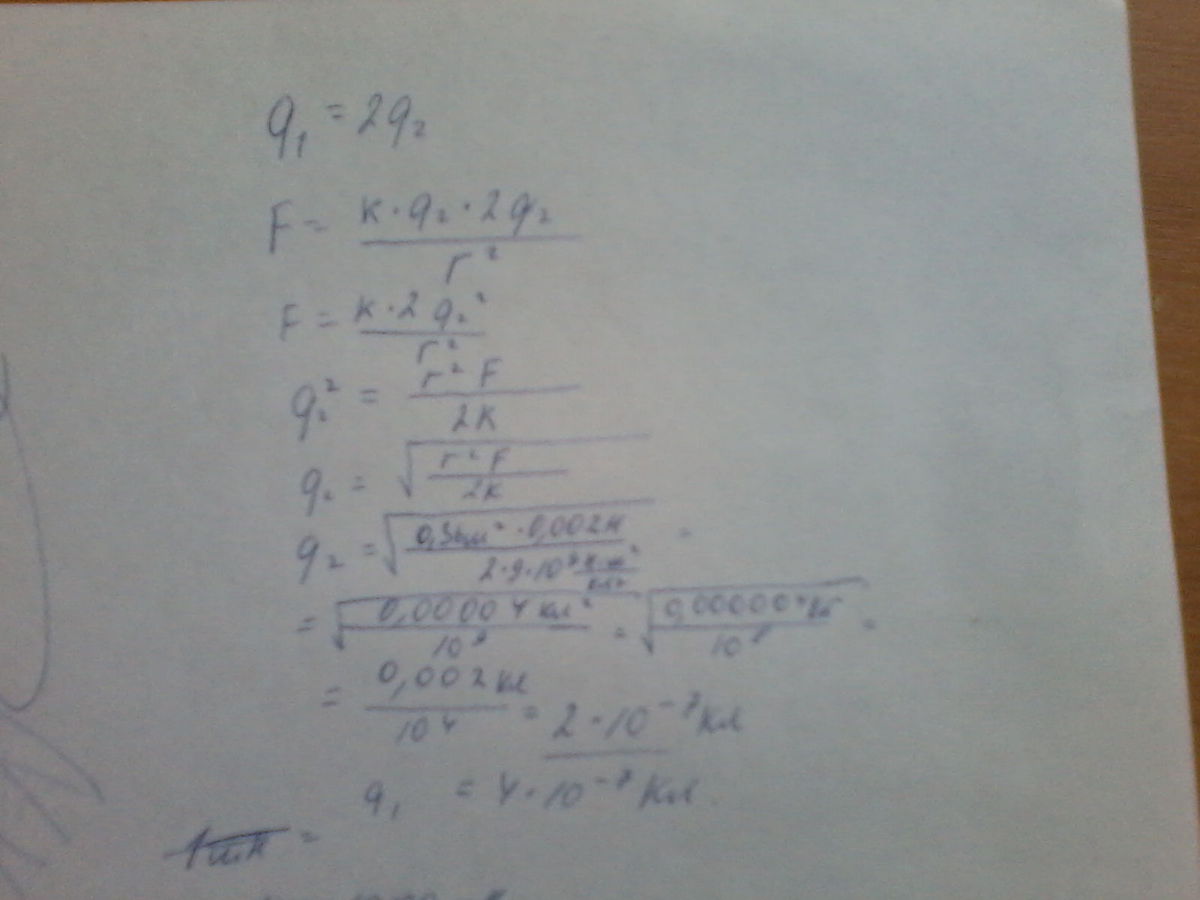 q₁ = 2q₂
F = k·q₂·2q₂ / r²
F = k·2q₂² / r²
q₂² = r²F / 2k
q₂ = √(r²F / 2k)
q₂ = √(0,36м²·0,002Н / 2·9·10⁹ Н·м²/кл²) =
= √(0,00004 кл² / 10⁹) = √(0,000004 / 10⁸) =
= 0,002кл / 10⁴ = 2·10⁻⁷Кл
q₁ = 4·10⁻⁷Кл.
=